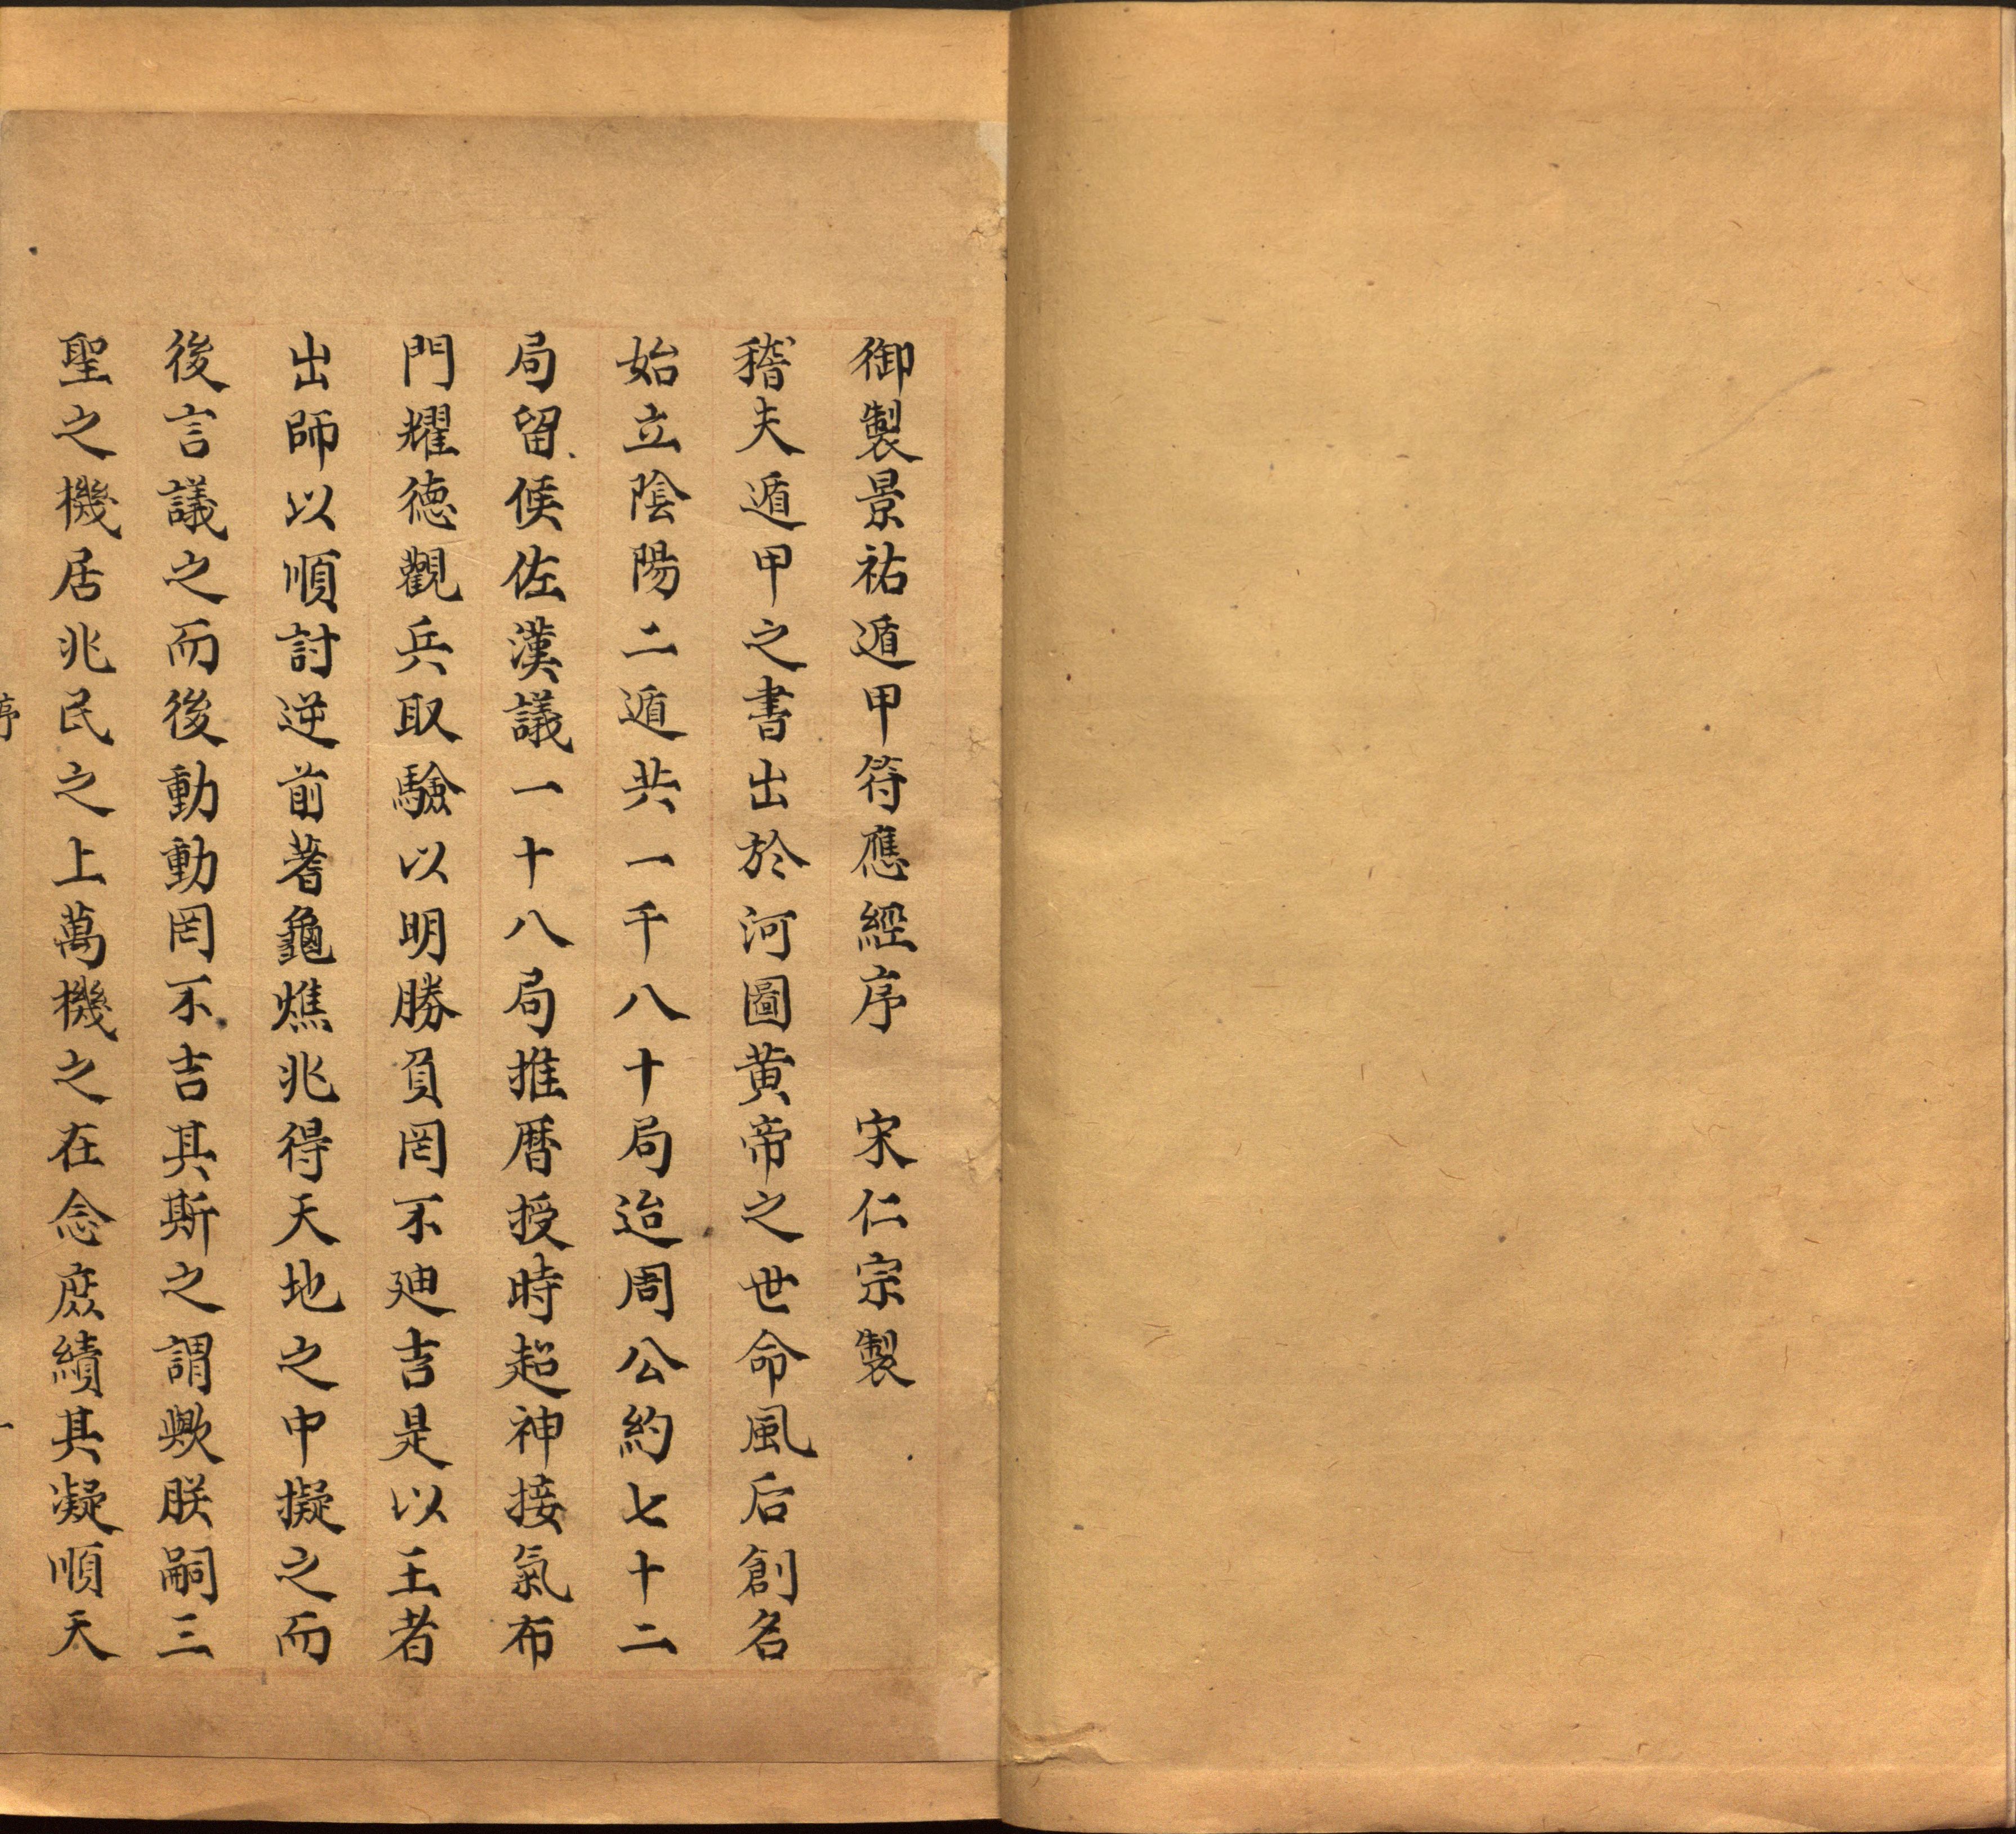 御製景祐遁甲符應經序　宋仁宗製
稽夫遁甲之書出於河圖黃帝之世命風后創名
始立陰陽二遁共一千八十局迨周公約七十二
局留侯佐漢議一十八局推曆授時超神接氣布
門耀德觀兵取驗以明勝負罔不迪吉是以王者
出師以順討逆前蓍龜燋兆得天地之中擬之而
後言議之而後動動罔不吉其斯之謂歟朕嗣三
聖之機居兆民之上萬機之在念庶績其凝順天